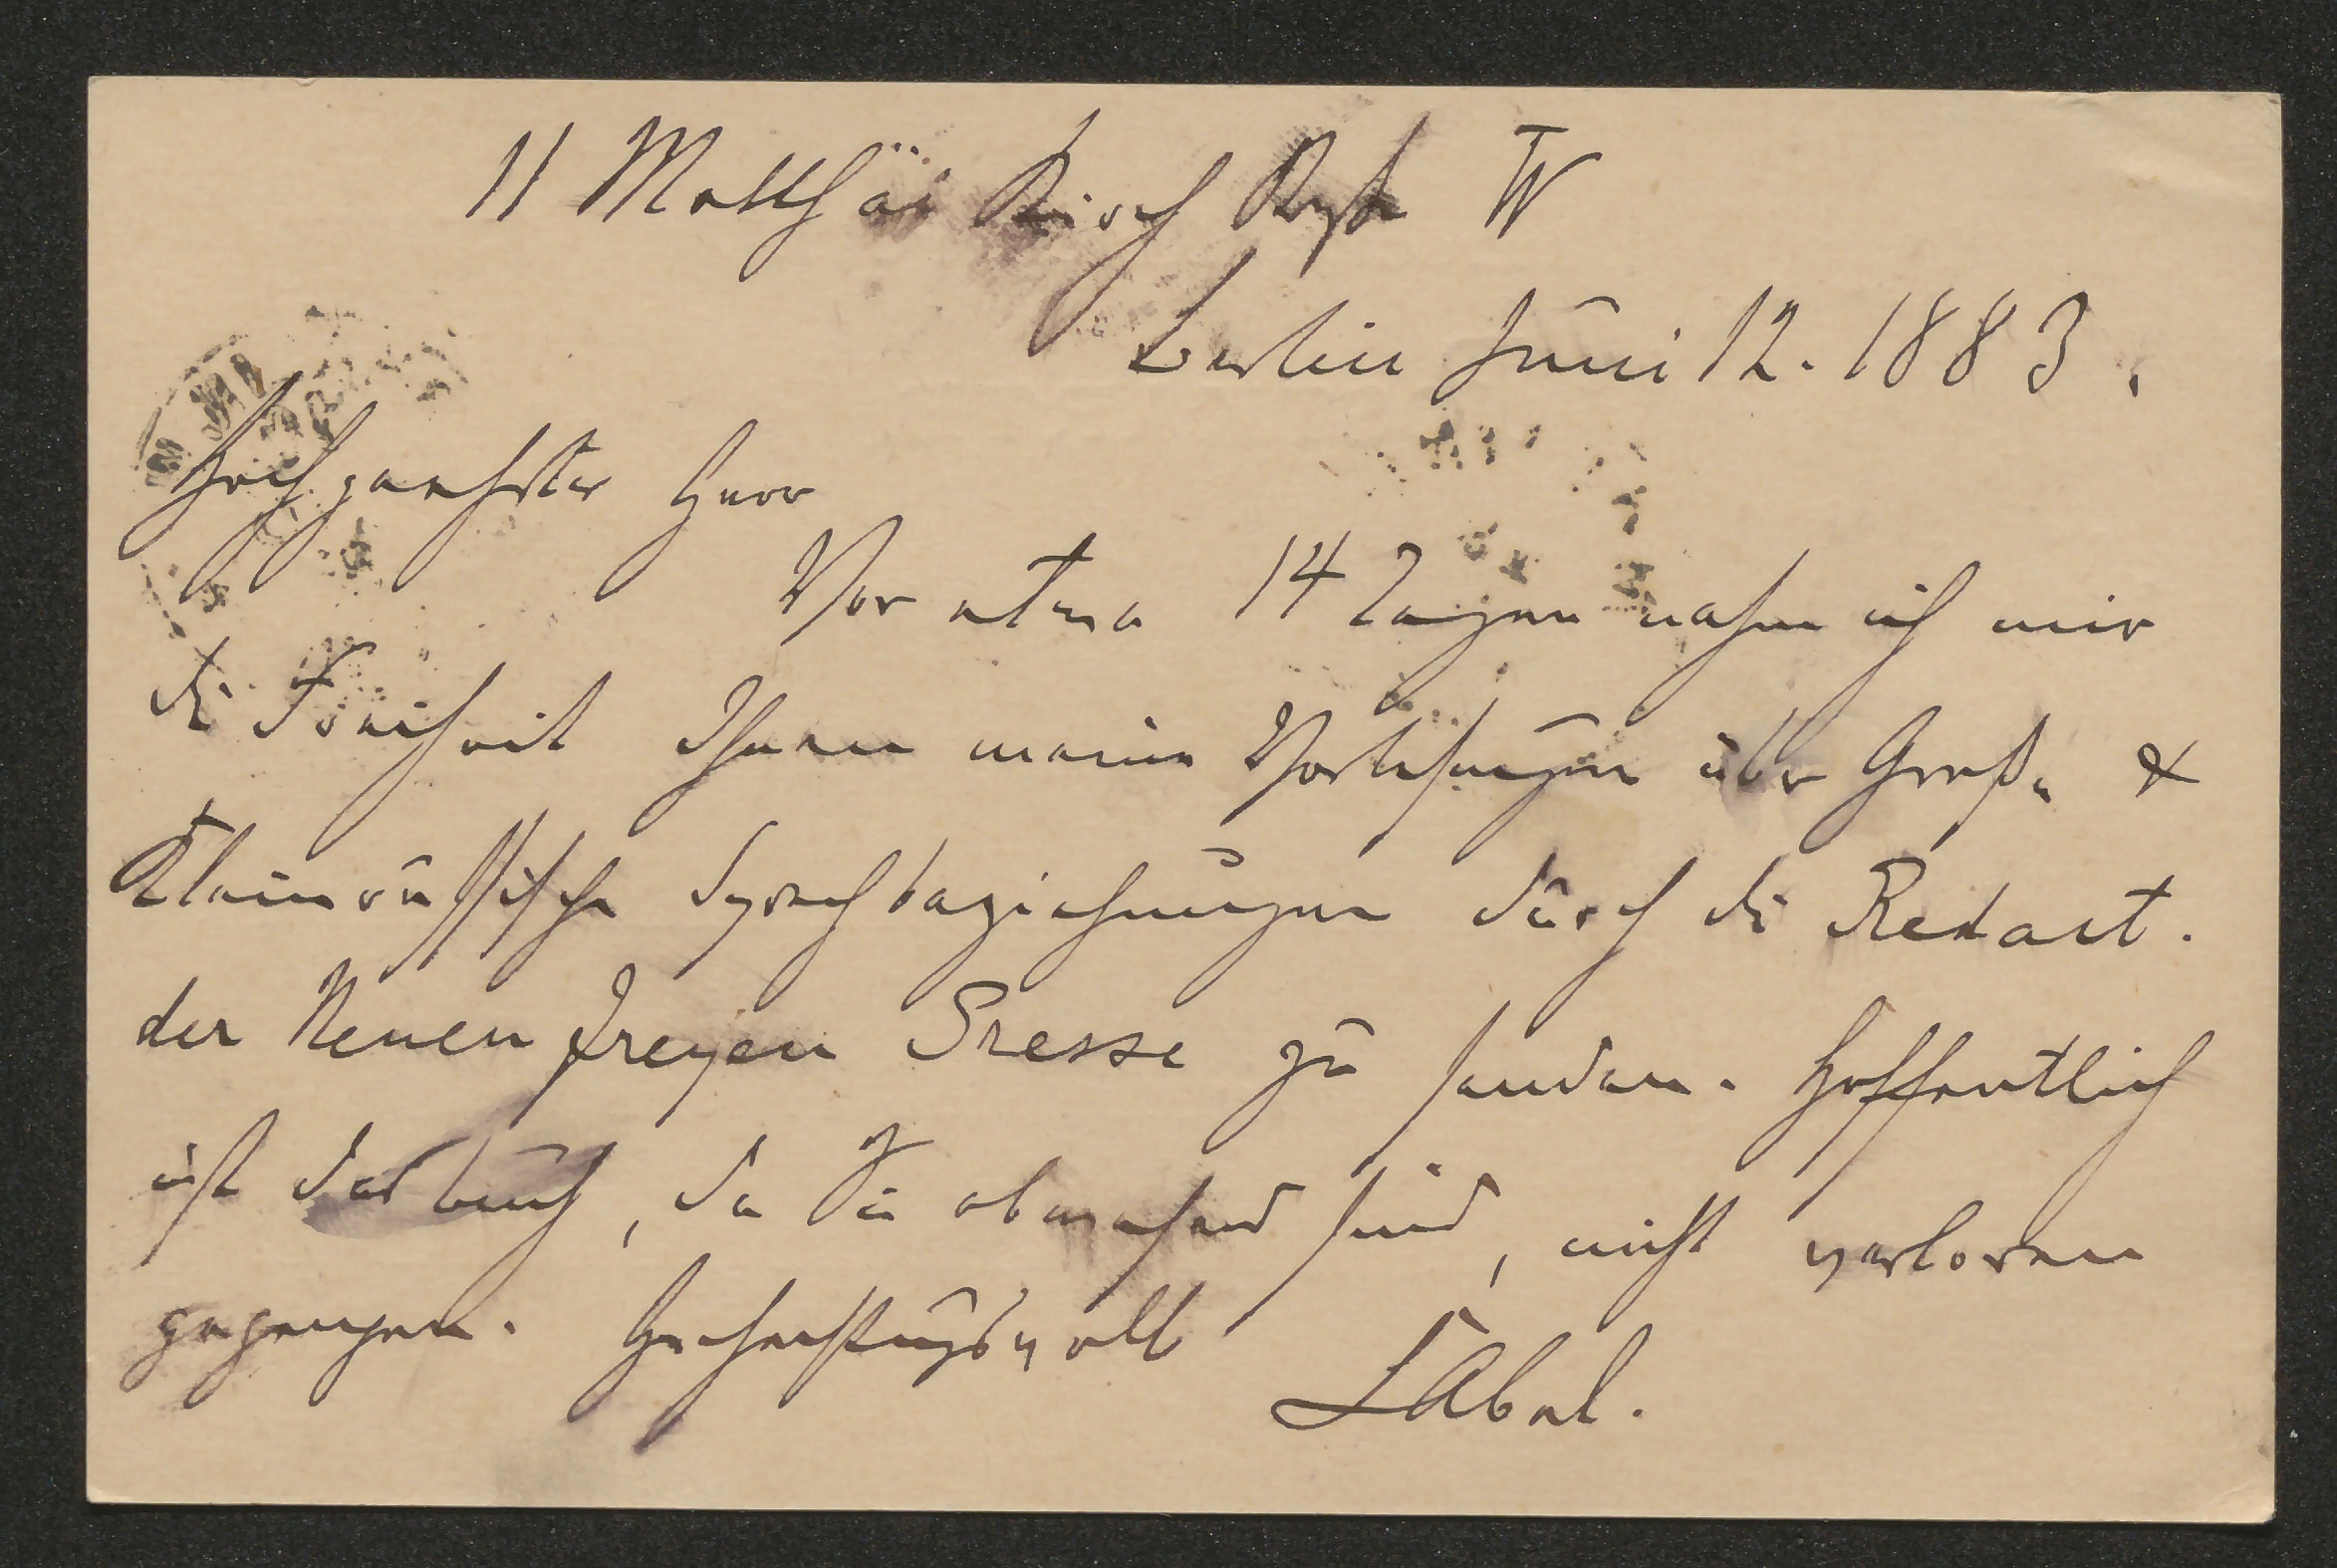 11 Matthäi Kirch Str W
Berlin Juni 12. 1883.
Hochgeehrter Herr
Vor etwa 14 Tagen nahm ich mir
die Freiheit Ihnen meine Vorlesungen über Groß- &
Kleinrussische Sprachbeziehungen durch die Redact.
der Neuen Freyen Presse zu senden. Hoffentlich
ist das Buch, da Sie abwesend sind, nicht verloren
gegangen. Hochachtungsvoll
CAbel.